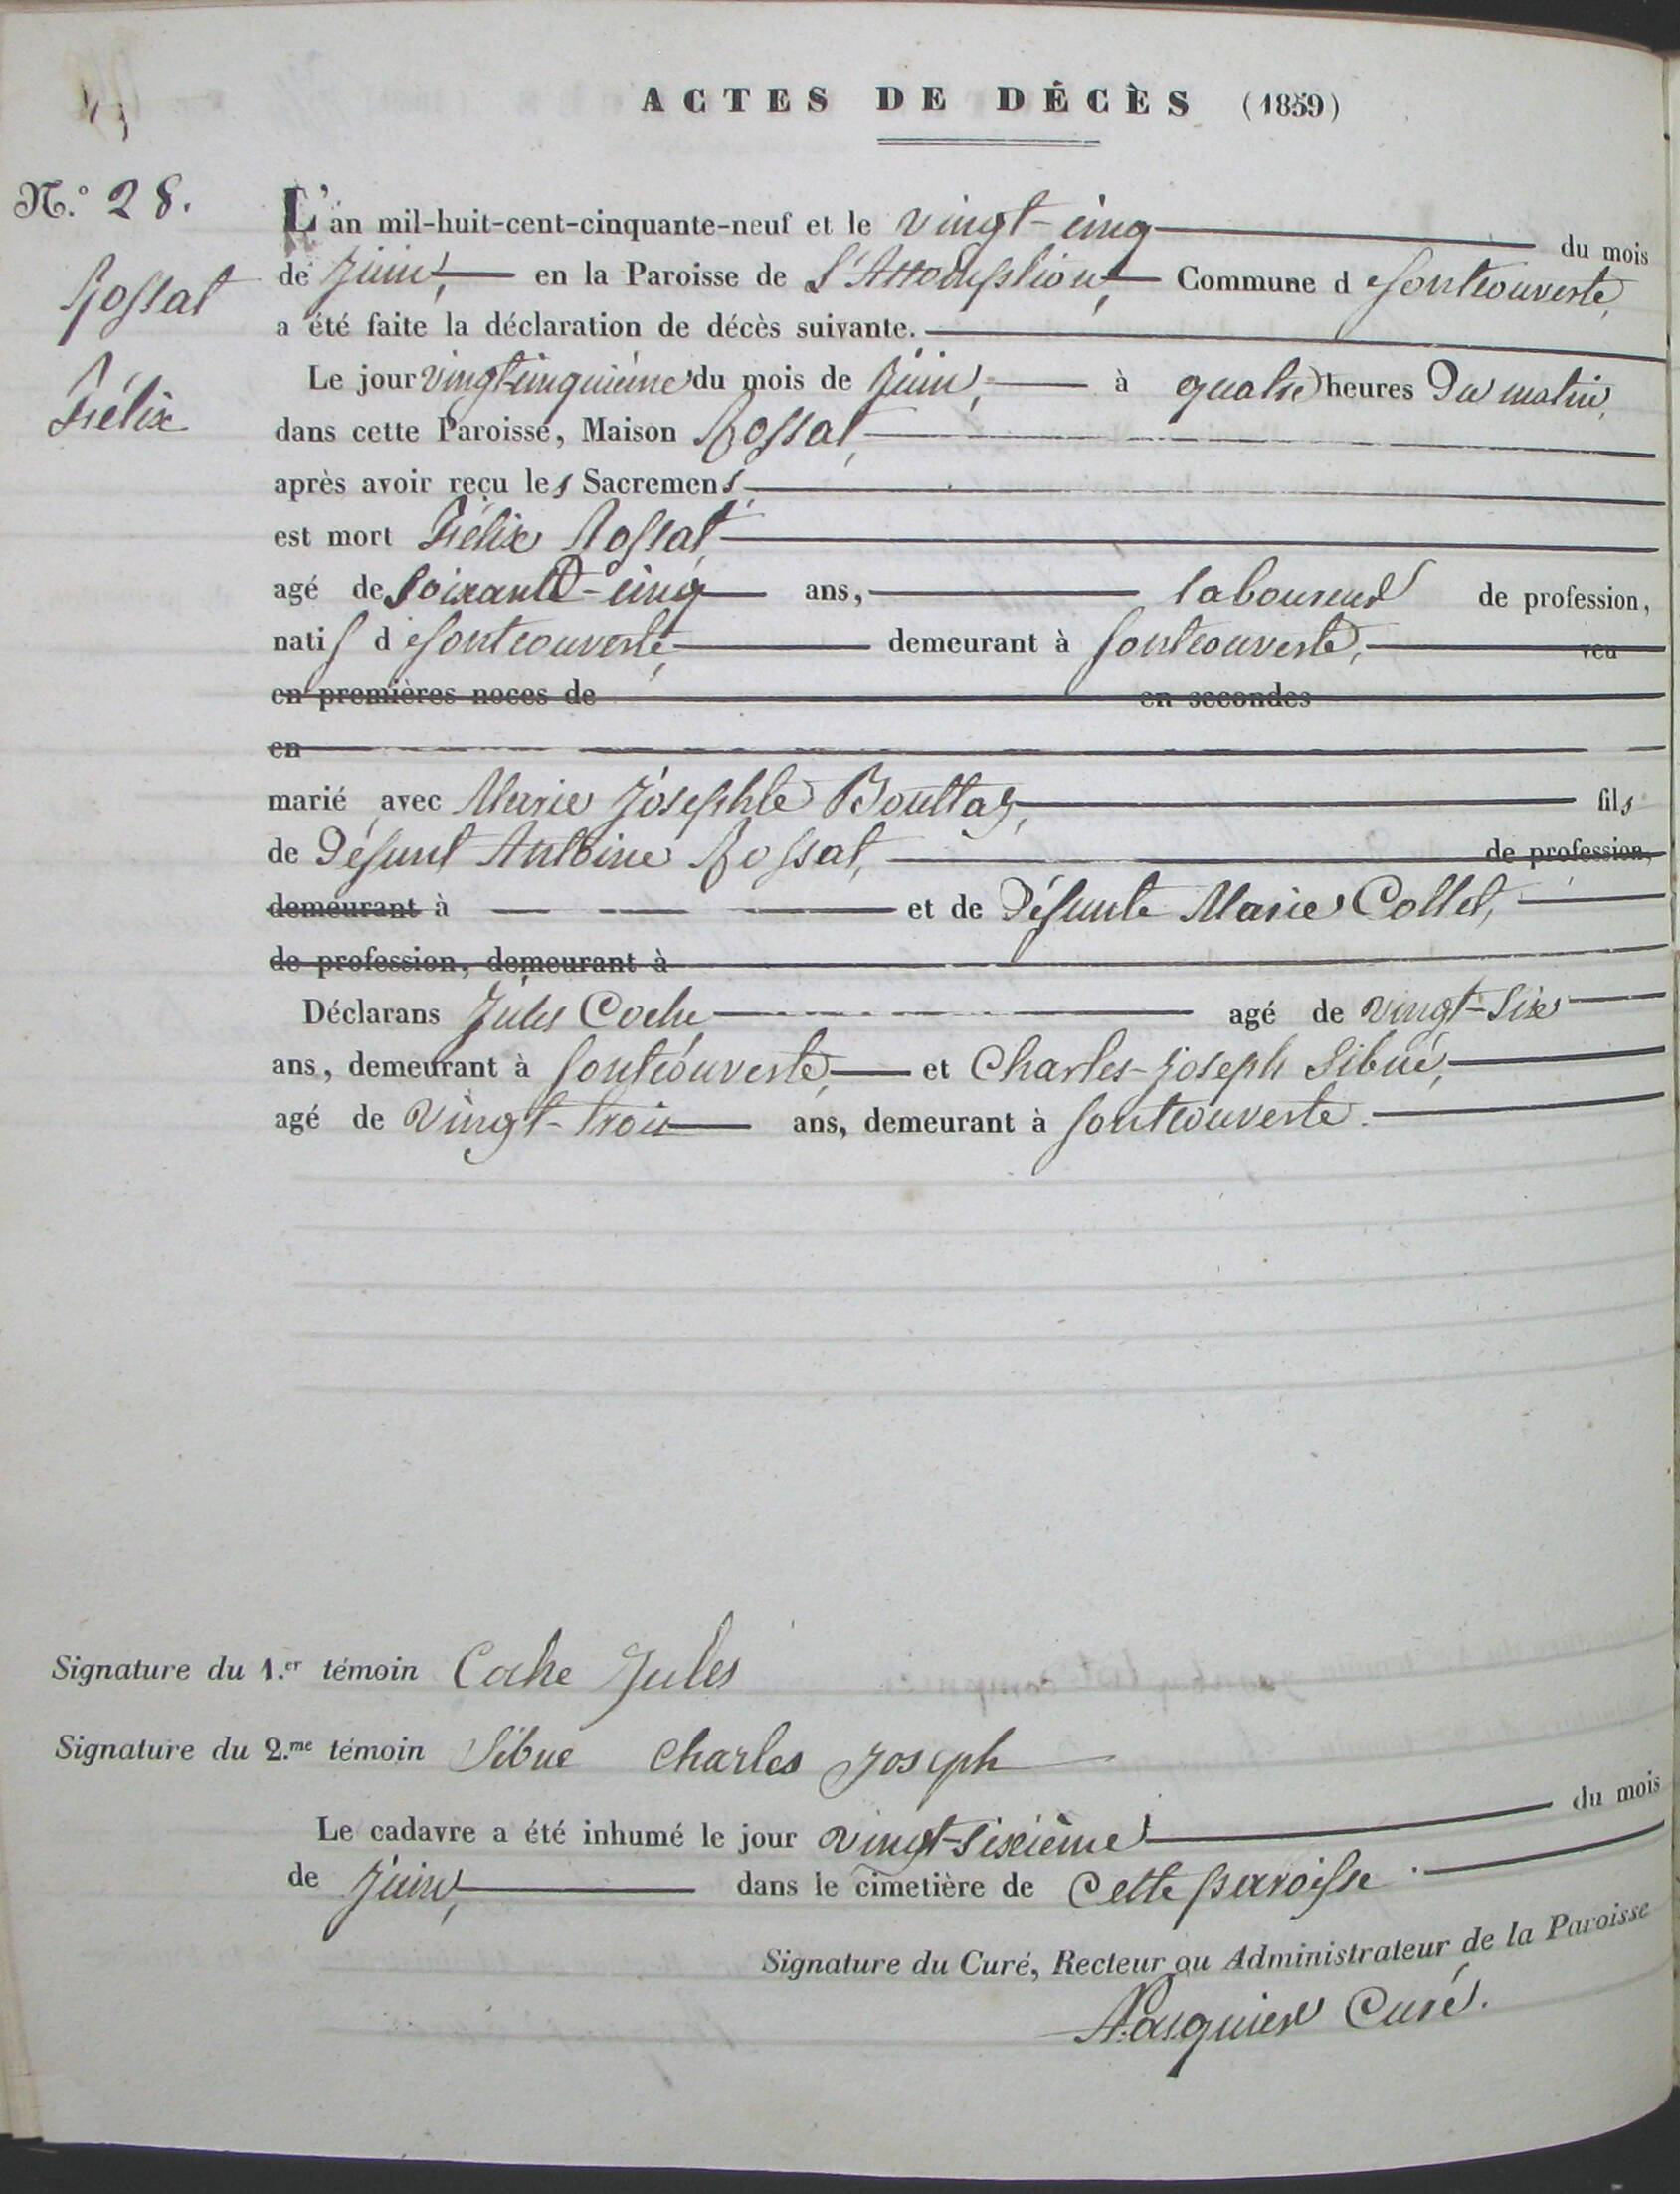 ACTES DE DÉCÈS (1859)
N.º 28.
Rossat
Félix
L'an mil-huit-cent-cinquante-neuf et le vingt-cinq du mois
de juin, en la Paroisse de l'Assomption, Commune d e fontcouverte,
a été faite la déclaration de décès suivante.
Le jour vingt-cinquième du mois de juin, à quatre heures du matin,
dans cette Paroisse, Maison Rossat,
après avoir reçu les Sacremens,
est mort Félix Rossat,
agé de soixante-cinq ans, laboureur de profession,
natif d e fontcouverte, demeurant à fontcouverte, veu
en premières noces de en secondes
en
marié avec Marie Josephte Bouttaz, fils
de défunt Antoine Rossat, de profession,
demeurant à et de défunte Marie Collet,
de profession, demeurant à
Déclarans Jules Coche agé de vingt-six
ans, demeurant à fontcouverte, et Charles-Joseph Sibué,
agé de vingt-trois ans, demeurant à fontcouverte.
Signature du 1.er témoin Coche Jules
Signature du 2.me témoin Sibue Charles Joseph
Le cadavre a été inhumé le jour vingt-sixième du mois
de juin, dans le cimetière de cette paroisse.
Signature du Curé, Recteur ou Administrateur de la Paroisse
Pasquier Curé.